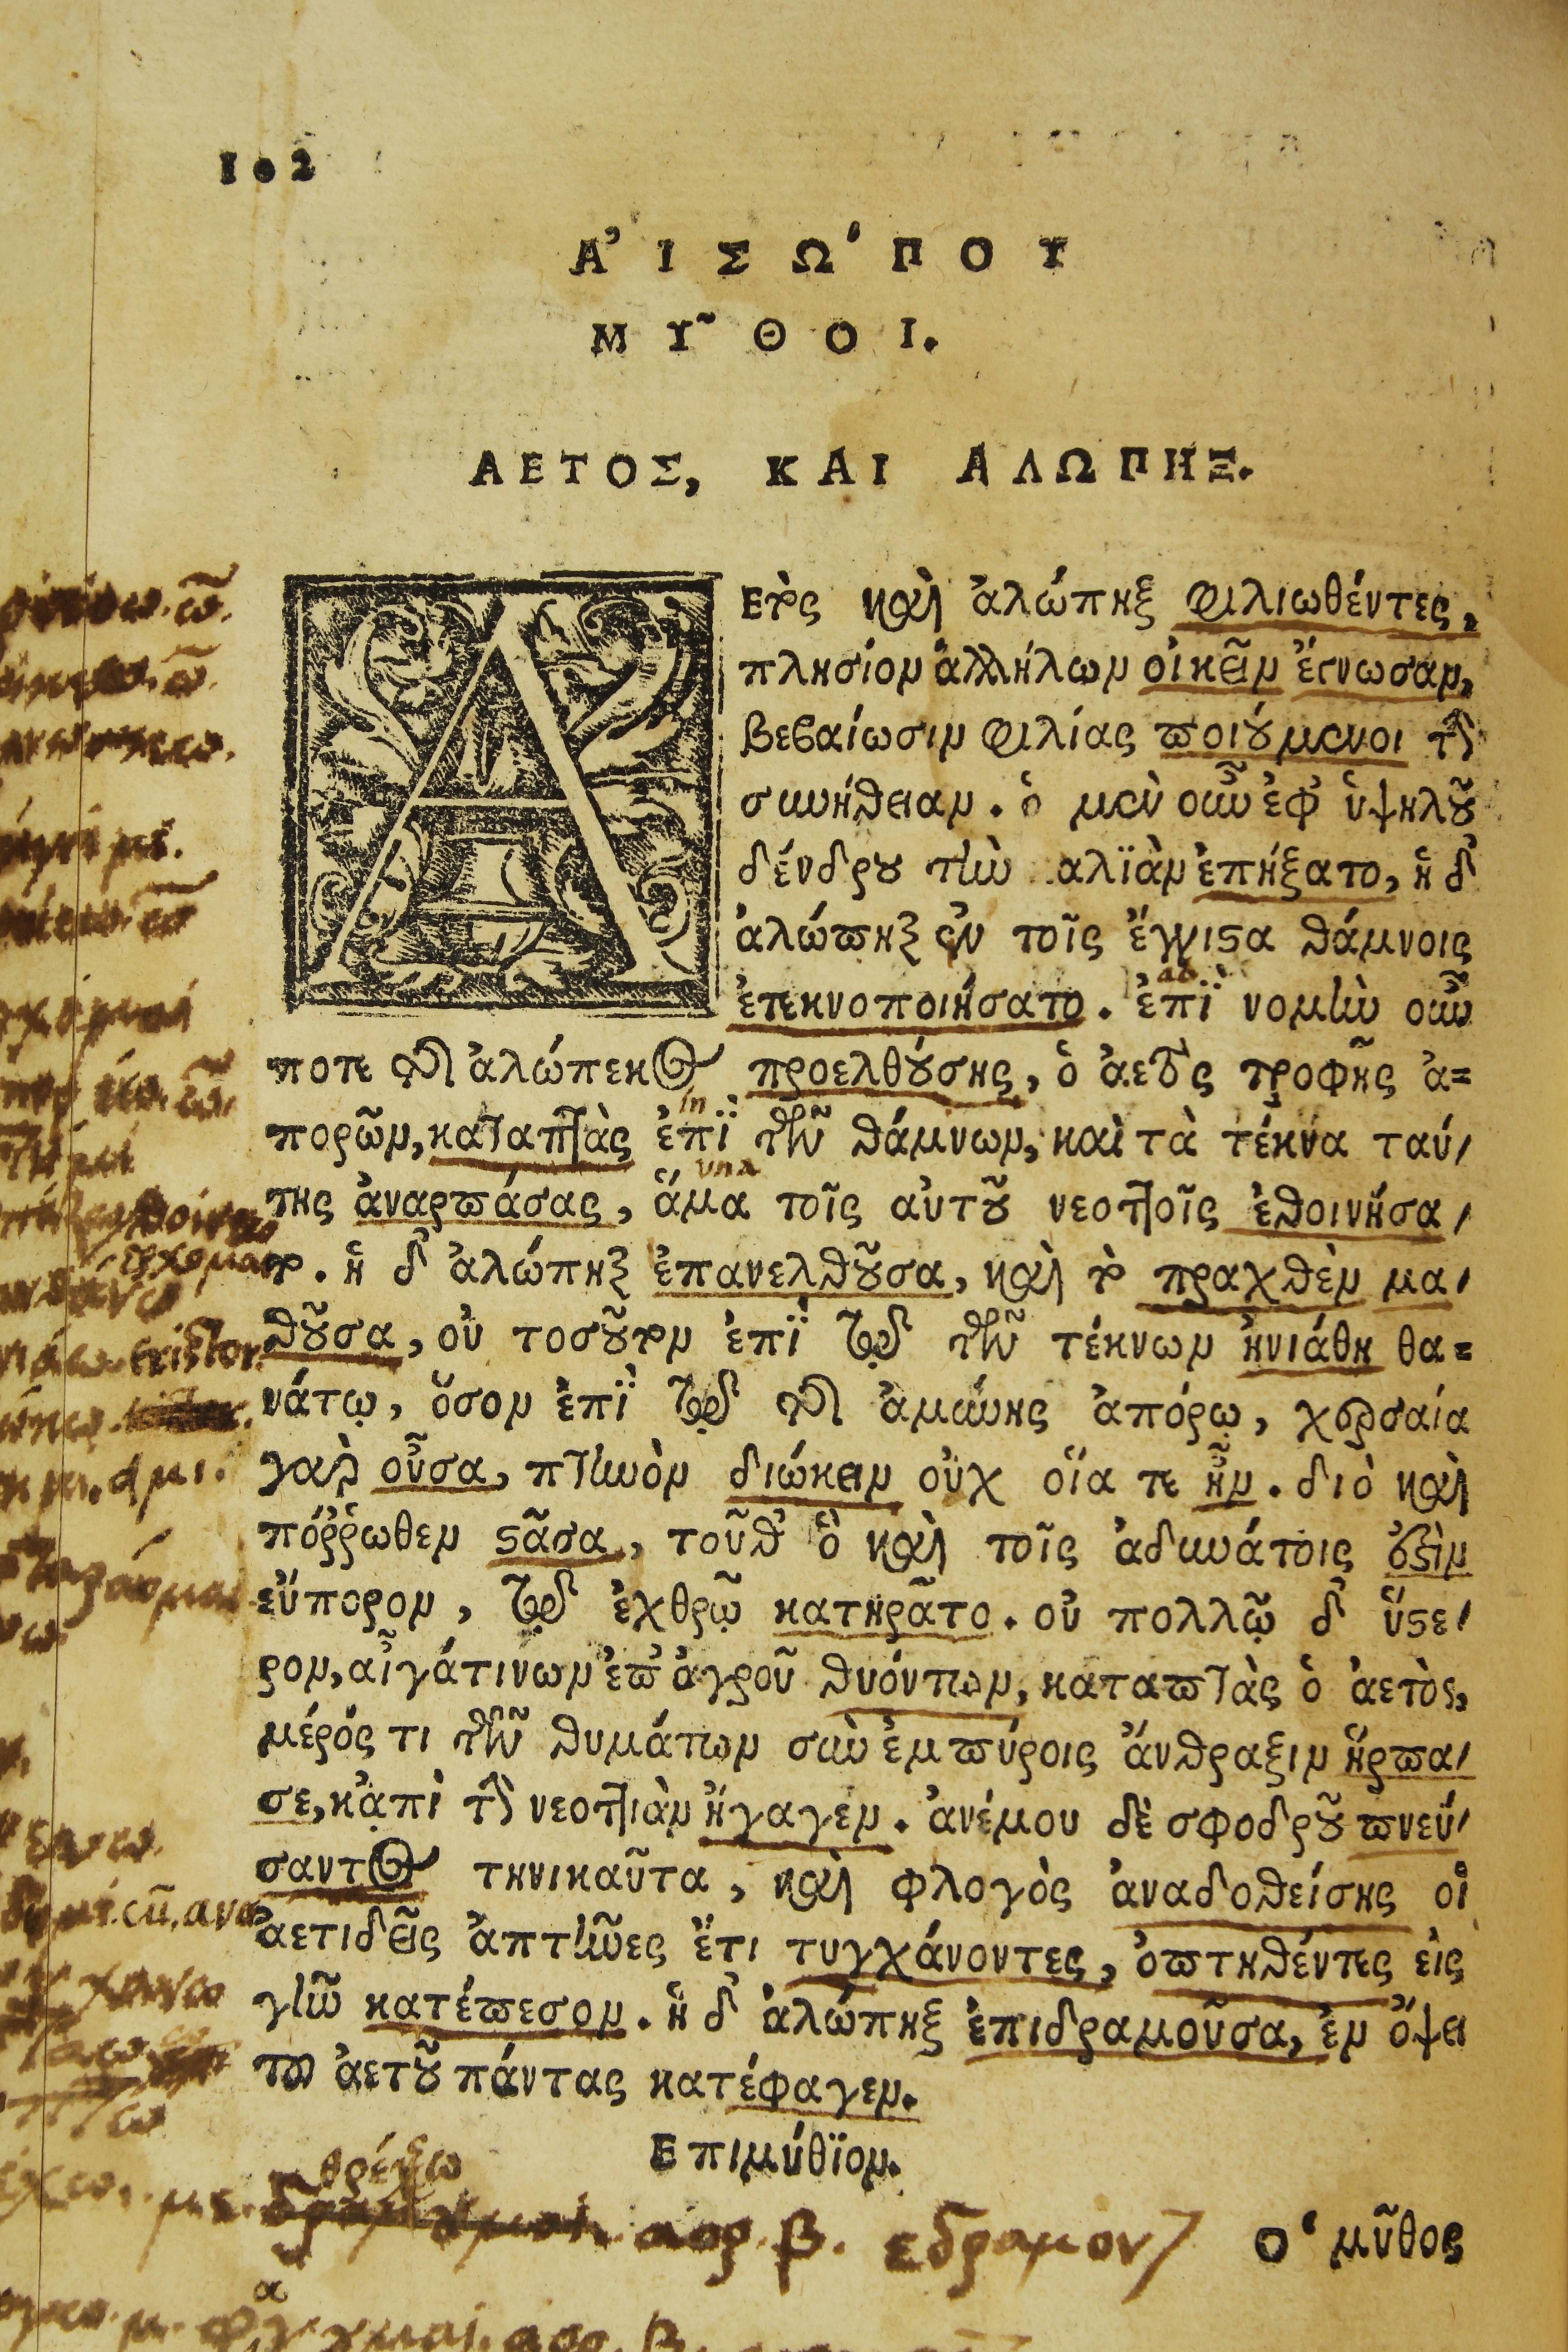 102
Α᾿ΙΣΩ΄ΠΟΥ
ΜΥ῀ΘΟΙ.
ΑΕΤΟΣ, ΚΑΙ ΑΛΩΠΗΞ.
ΑΕτὸς καὶ ἀλώπηξ φιλιωθέντες,
πλησίον ἀλλήλων οἰκεῖν ἔγνωσαν,
βεβαίωσιν φιλίας ποιούμενοι τὴν
συνήθειαν. ὁ μὲν οὖν ἐφ᾽ ὑψηλοῦ
δένδρου τὴν καλϊὰν ἐπήξατο, ἡ δ᾽
ἀλώπηξ ἐν τοῖς ἔγγιστα θάμνοις
ἐτεκνοποιήσατο. ἐπῒ νομὴν οὖν
ποτε τῆς ἀλώπεκος προελθούσης, ὁ ἀετὸς τροφῆς ἀ=
πορῶν, καταπτὰς ἐπῒ τῶν θάμνων, καὶ τὰ τέκνα ταύ/
της ἀναρπάσας, ἅμα τοῖς αὐτοῦ νεοττοῖς ἐθοινήσα/
το. ἡ δ᾽ ἀλώπηξ ἐπανελθοῦσα, καὶ τὸ πραχθὲν μα/
θοῦσα, οὐ τοσοῦτον ἐπῒ τῷ τῶν τέκνων ἠνιάθη θα=
νάτῳ, ὅσον ἐπῒ τῷ τῆς ἀμύνης ἀπόρῳ, χερσαία
γὰρ οὖσα, πτηνὸν διώκειν οὐχ οἵα τε ἦν. διὸ καὶ
πόῤῥωθεν στᾶσα, τοῦθ᾽ ὃ καὶ τοῖς ἀδυνάτοις ἐστὶν
εὔπορον, τῷ ἐχθρῷ κατηρᾶτο. οὐ πολλῷ δ᾽ ὕστε/
ρον, αἶγά τινων ἐπ᾽ ἀγροῦ θυόντων, καταπτὰς ὁ ἀετὸς,
μέρός τι τῶν θυμάτων σὺν ἐμπύροις ἄνθραξιν ἥρπα/
σε, κᾀπὶ τὴν νεοττιὰν ἤγαγεν. ἀνέμου δὲ σφοδροῦ πνεύ/
σαντος τηνικαῦτα, καὶ φλογὸς ἀναδοθείσης οἱ
ἀετιδεῖς ἀπτῆνες ἔτι τυγχάνοντες, ὀπτηθέντες εἰς
γῆν κατέπεσον. ἡ δ᾽ ἀλώπηξ ἐπιδραμοῦσα, ἐν ὄψει
τοῦ ἀετοῦ πάντας κατέφαγεν.
Επιμύθϊον.
θρέξω
αορ. β. εδραμον
Ο῾ μῦθος